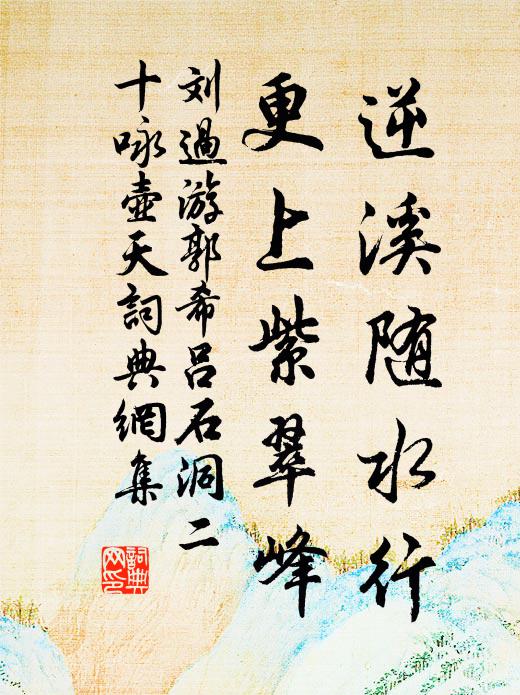 逆溪随水行
更上紫翠峰
刘過游郭希吕石洞二
十咏壺天詞典網集
詞典
网印